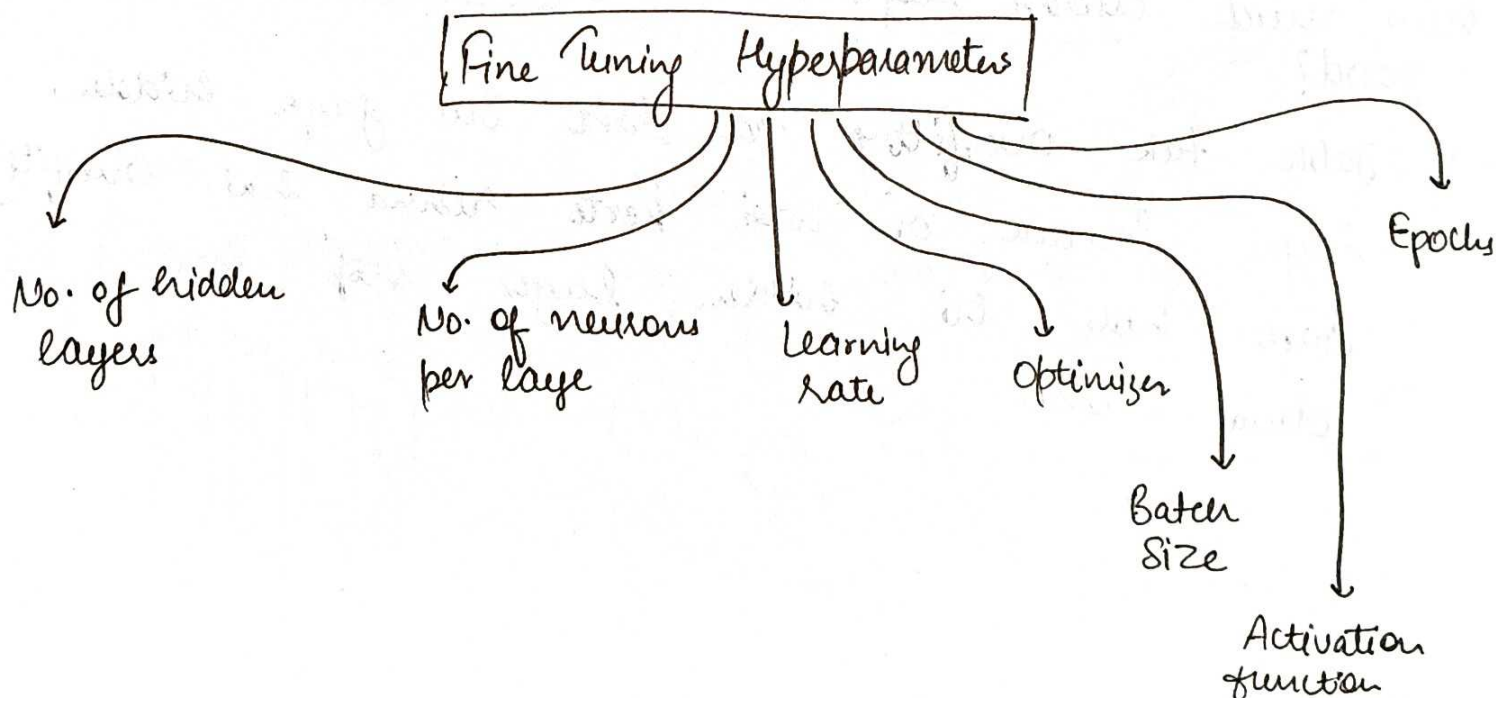 Fine Tuning Hyperparameters
No. of hidden
layers
No. of neurons
per laye
Learning
rate
Optimizer
Batch
Size
Activation
function
Epochs